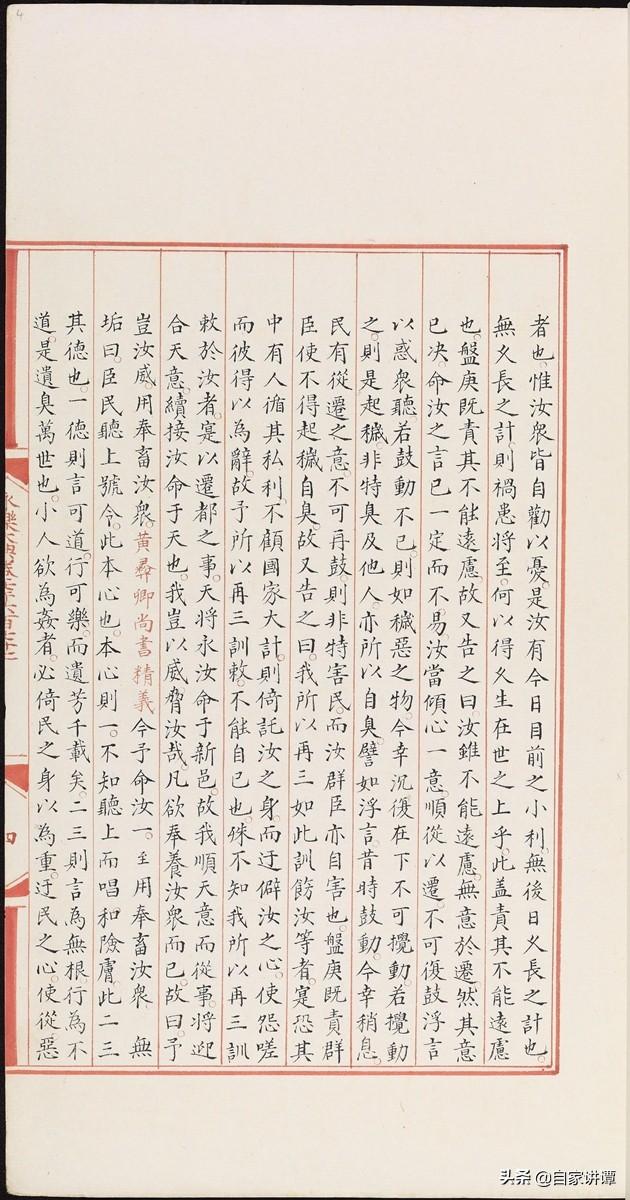 者也惟汝衆皆自勸以憂是汝有今日目前之小利無後日久長之計也
無久長之計則禍患將至何以得久生在世之上乎此盖責其不能遠慮
也盤庚既責其不能遠慮故又告之曰汝雖不能遠慮無意於遷然其意
已决命汝之言已一定而不易汝當傾心一意順從以遷不可復鼓浮言
以惑衆聽若鼓動不已則如穢惡之物今幸沉復在下不可攪動若攪動
之則是起穢非特臭及他人亦所以自臭譬如浮言昔時鼓動今幸稍息
民有從遷之意不可再鼓則非特害民而汝群臣亦自害也盤庚既責群
臣使不得起穢自臭故又告之曰我所以再三如此訓飭汝等者寔恐其
中有人循其私利不顧國家大計則倚託汝之身而迂僻汝之心使怨嗟
而彼得以為辭故予所以再三訓敕不能自已也殊不知我所以再三訓
敕於汝者寔以遷都之事天將永汝命于新邑故我順天意而從事將迎
合天意續接汝命于天也我豈以威脅汝哉凡欲奉養汝衆而已故曰予
豈汝威用奉畜汝衆黄彛卿尚書精義今予命汝一至用奉畜汝衆 無
垢曰臣民聽上號令此本心也本心則一不知聽上而唱和險膚此二三
其德也一德則言可道行可樂而遺芳千載矣二三則言為無根行為不
道是遺臭萬世也小人欲為姦者必倚民之身以為重迂民之心使從惡
四
头条 @自家讲谭
4